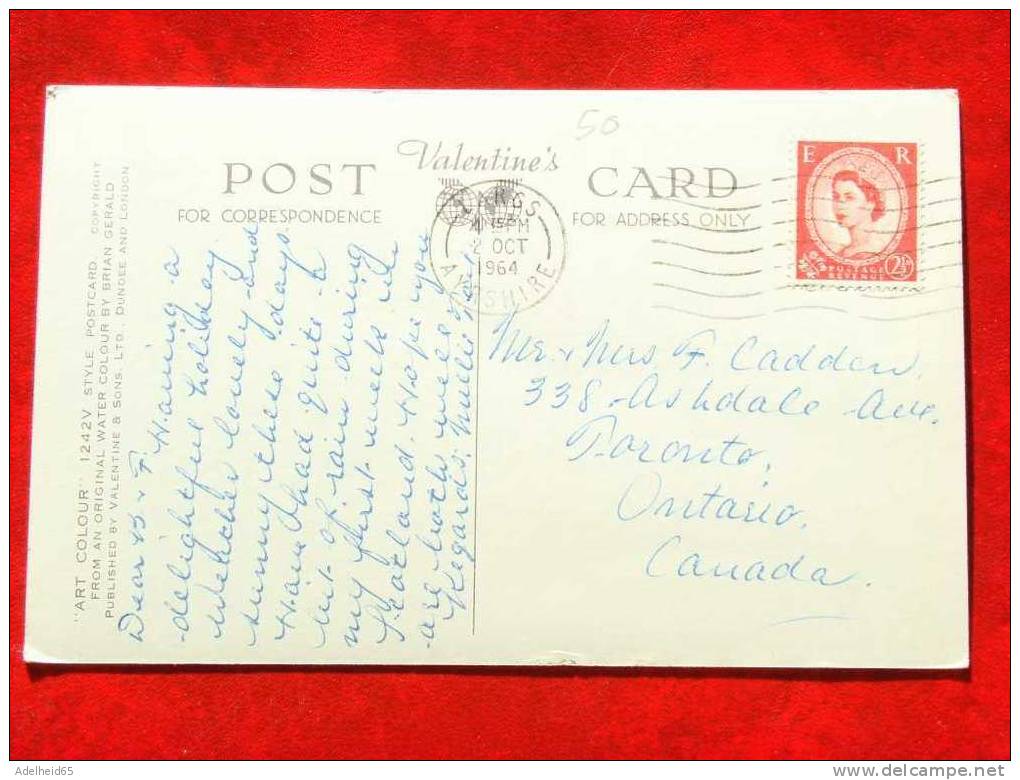 50
Valentine's
POST CARD
FOR CORRESPONDENCE
FOR ADDRESS ONLY
E R
POSTAGE
REVENUE
2½D
2 OCT
1964
AYRSHIRE
"ART COLOUR" 1242V STYLE POSTCARD. COPYRIGHT
FROM AN ORIGINAL WATER COLOUR BY BRIAN GERALD
PUBLISHED BY VALENTINE & SONS. LTD., DUNDEE AND LONDON
Dear B & F. Having a
delightful holiday
weather lovely and
sunny these days.
Have had quite a
bit of rain during
my first week in
Scotland. Hope you
are both well
Regards. Nellie
Mr. & Mrs F. Cadden.
338 Ashdale Ave.
Toronto,
Ontario,
Canada.
Adelheid65
delcampe.net